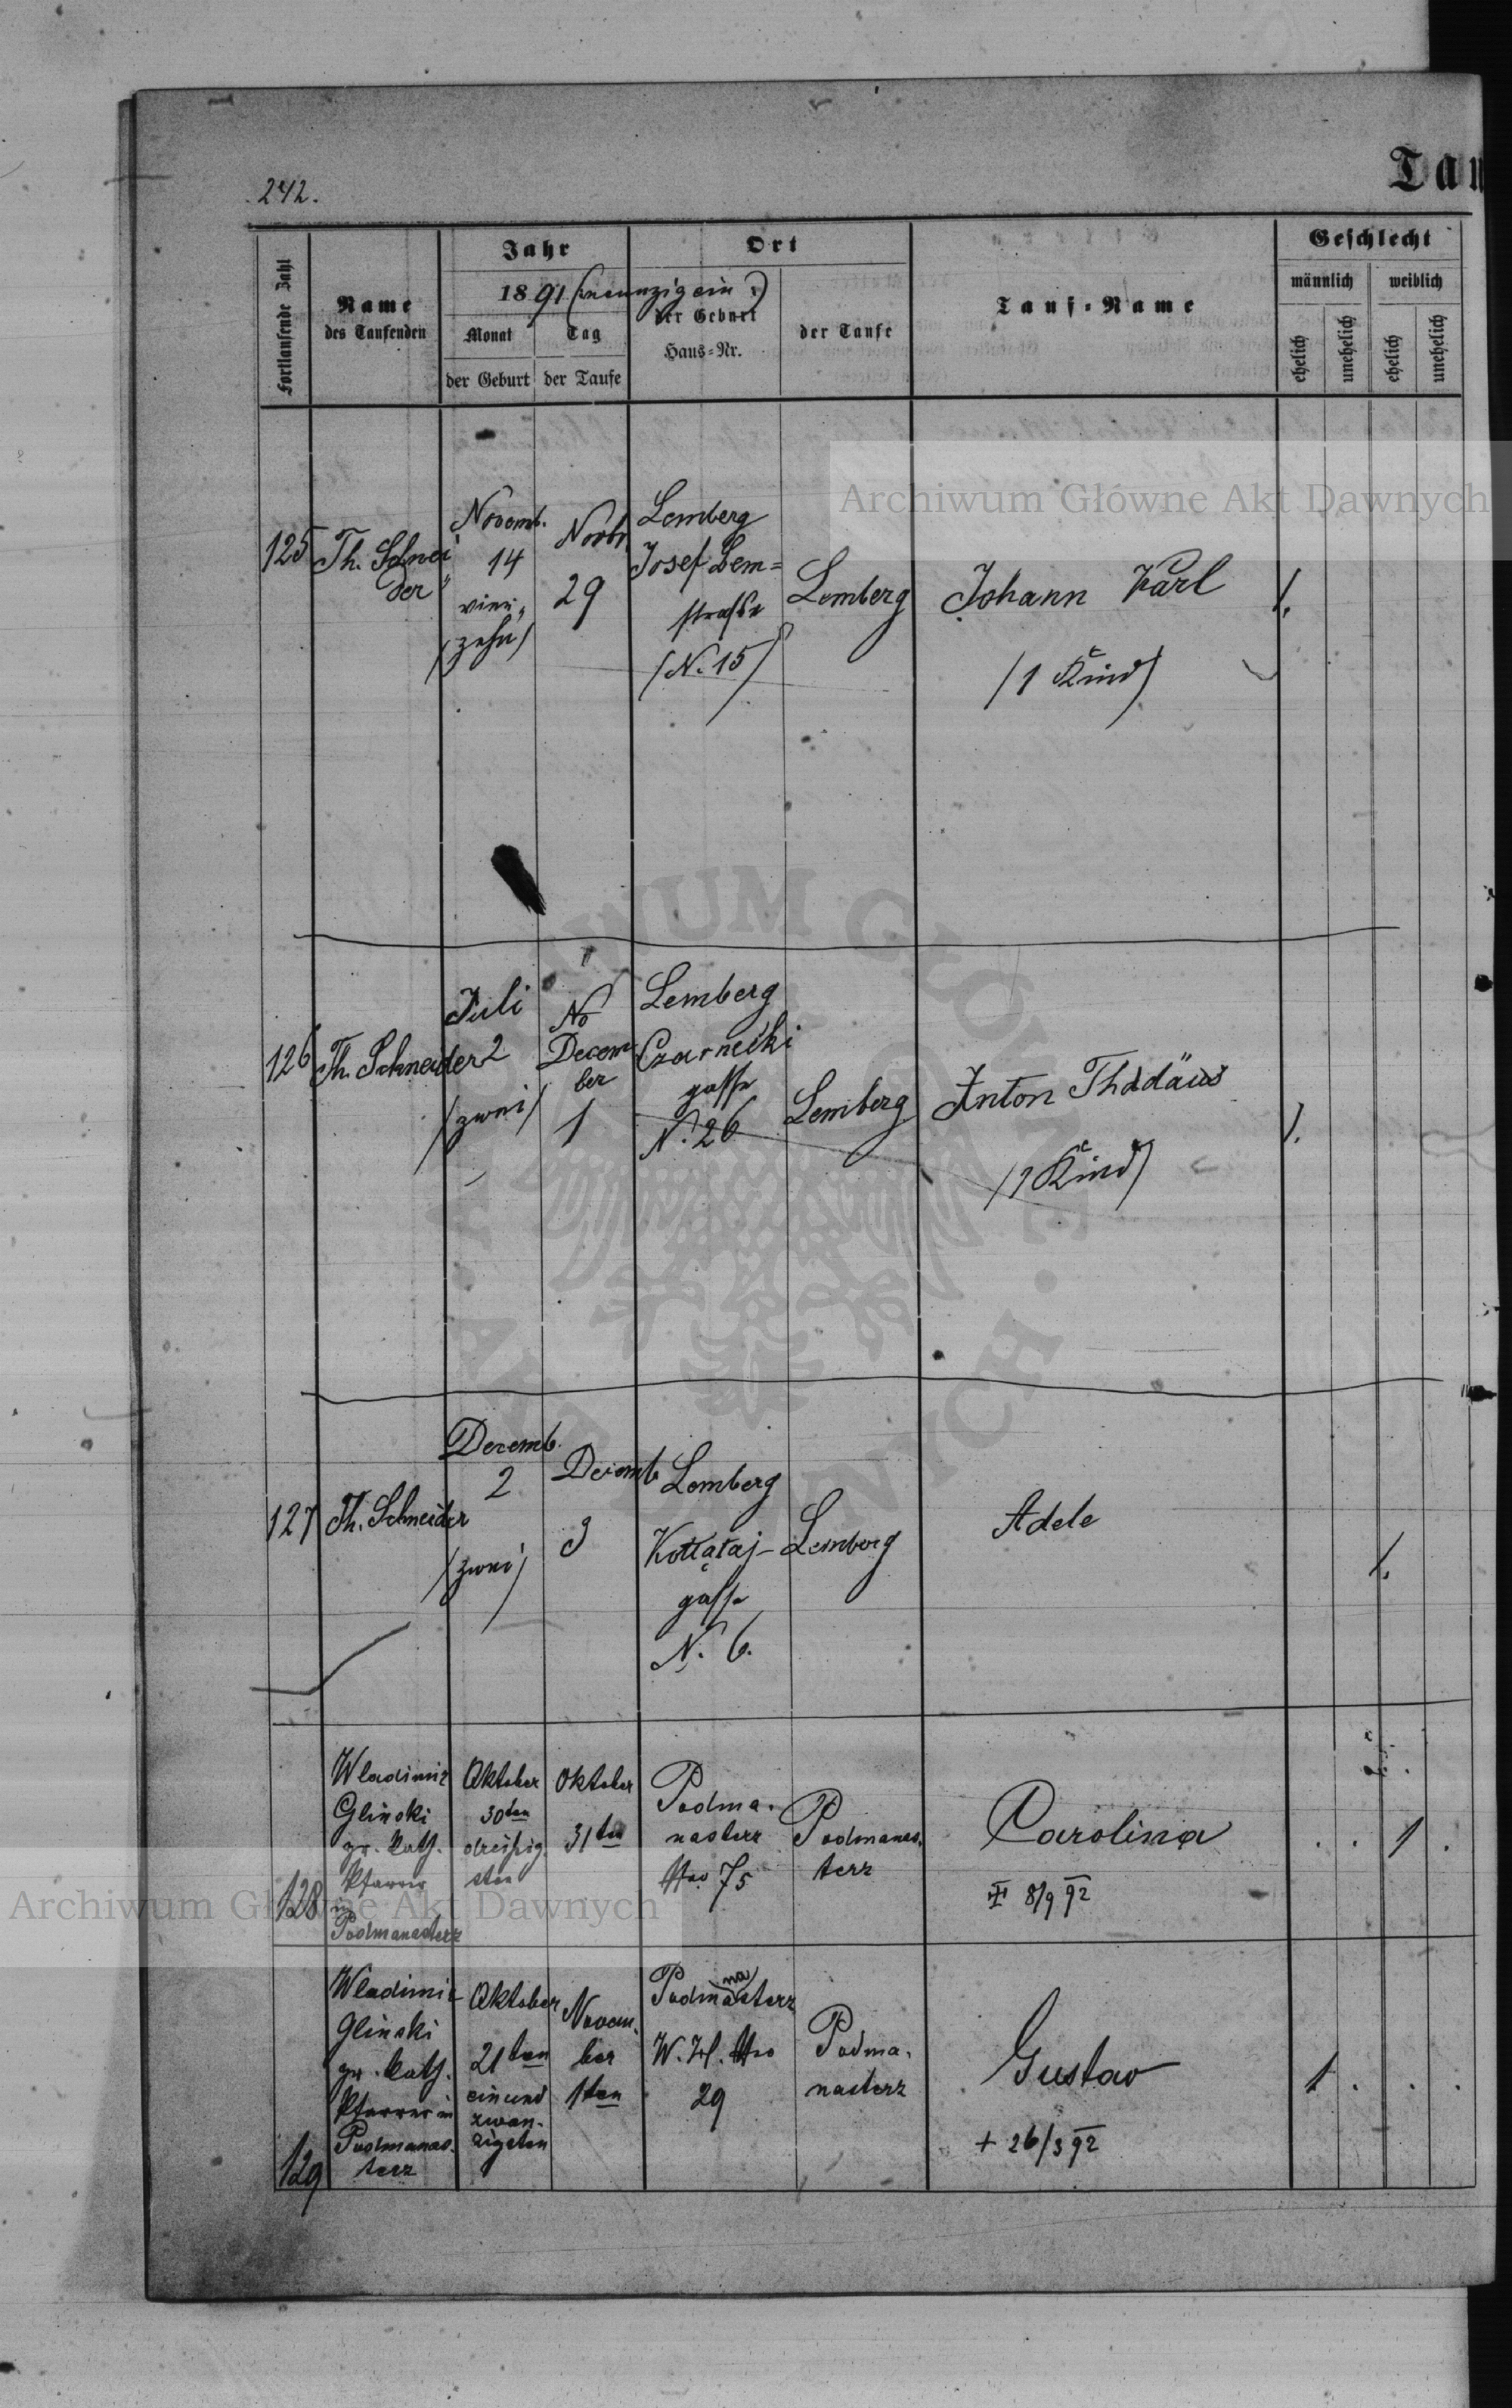 Tau
242.
Fortlaufende Zahl
Name
des Taufenden
Jahr
1891 (neunzig ein)
Monat
der Geburt
Tag
der Taufe
Ort
der Geburt
Haus-Nr.
der Taufe
Tauf-Name
Geschlecht
männlich
weiblich
ehelich
unehelich
ehelich
unehelich
125
Th. Schnei
der
Novemb.
14
vier-
(zehn)
Novbr
29
Lemberg
Josef Bem=
straße
(N. 15)
Lemberg
Johann Karl
(1 Kind)
1.
126
Th. Schneider
Juli
2
(zwei)
No
Decem
ber
1
Lemberg
Czarnecki
gasse
N. 26
Lemberg
Anton Thadäus
(1 Kind)
1.
127
Th. Schneider
Decemb.
2
(zwei)
Decemb
3
Lemberg
Kołłątaj-
gasse
N. 6.
Lemberg
Adele
1.
128
Wladimir
Glinski
gr. kath.
Pfarrer
in
Podmanasterz
Oktober
30ten
dreißig
sten
Oktober
31ten
Podma-
nasterz
Nro 75
Podmanas-
terz
Carolina
8/9 92
. . 1 .
129
Wladimir
Glinski
gr. kath.
Pfarrer in
Podmanas-
terz
Oktober
21ten
ein und
zwan-
zigsten
Novem-
ber
1ten
na
Podmasterz
W. H. Nro
29
Podma-
nasterz
Gustav
+ 26/3 92
1 . . .
Archiwum Główne Akt Dawnych
Archiwum Główne Akt Dawnych